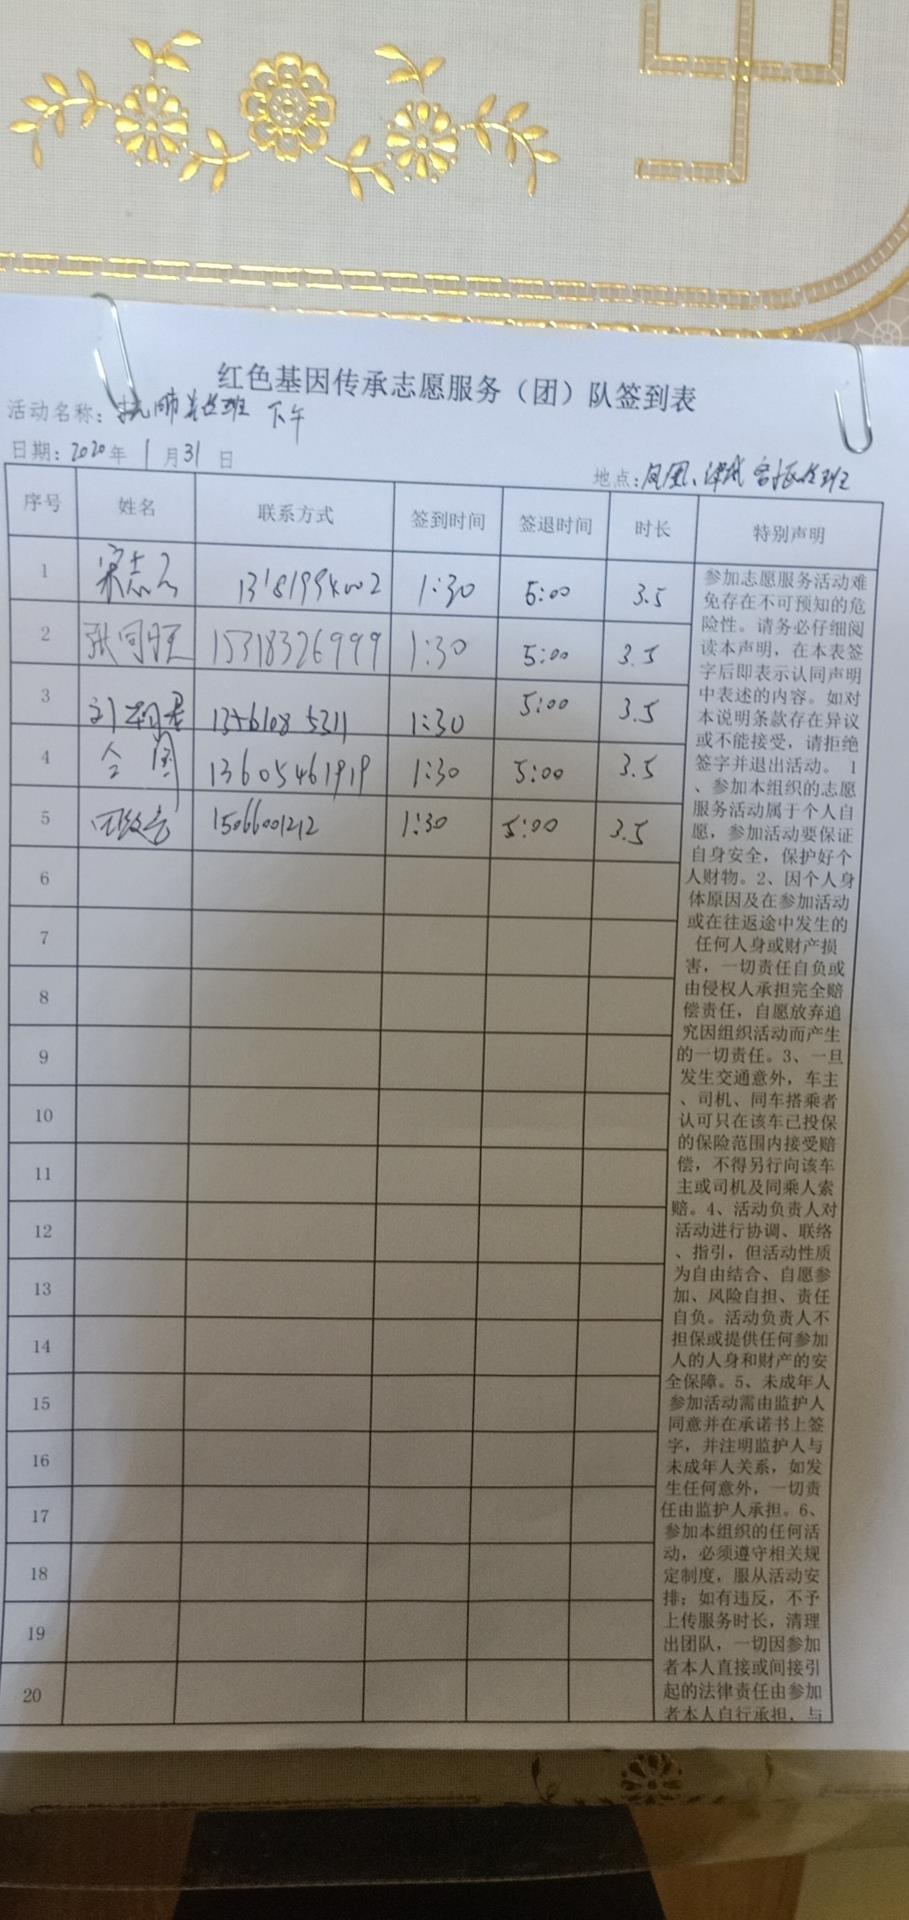 红色基因传承志愿服务（团）队签到表
活动名称： 下午
日期：2020年 1月31日
地点：凤凰、
序号 姓名 联系方式 签到时间 签退时间 时长 特别声明
1 宋志 1:30 5:00 3.5
2 张 15318326999 1:30 5:00 3.5
3 刘 13561085311 1:30 5:00 3.5
4 13605461919 1:30 5:00 3.5
5 15066001212 1:30 5:00 3.5
6
7
8
9
10
11
12
13
14
15
16
17
18
19
20
参加志愿服务活动难
免存在不可预知的危
险性。请务必仔细阅
读本声明，在本表签
字后即表示认同声明
中表述的内容。如对
本说明条款存在异议
或不能接受，请拒绝
签字并退出活动。 1
、参加本组织的志愿
服务活动属于个人自
愿，参加活动要保证
自身安全，保护好个
人财物。2、因个人身
体原因及在参加活动
或在往返途中发生的
任何人身或财产损
害，一切责任自负或
由侵权人承担完全赔
偿责任，自愿放弃追
究因组织活动而产生
的一切责任。3、一旦
发生交通意外，车主
、司机、同车搭乘者
认可只在该车已投保
的保险范围内接受赔
偿，不得另行向该车
主或司机及同乘人索
赔。4、活动负责人对
活动进行协调、联络
、指引，但活动性质
为自由结合、自愿参
加、风险自担、责任
自负。活动负责人不
担保或提供任何参加
人的人身和财产的安
全保障。5、未成年人
参加活动需由监护人
同意并在承诺书上签
字，并注明监护人与
未成年人关系，如发
生任何意外，一切责
任由监护人承担。6、
参加本组织的任何活
动，必须遵守相关规
定制度，服从活动安
排；如有违反，不予
上传服务时长，清理
出团队，一切因参加
者本人直接或间接引
起的法律责任由参加
者本人自行承担，与